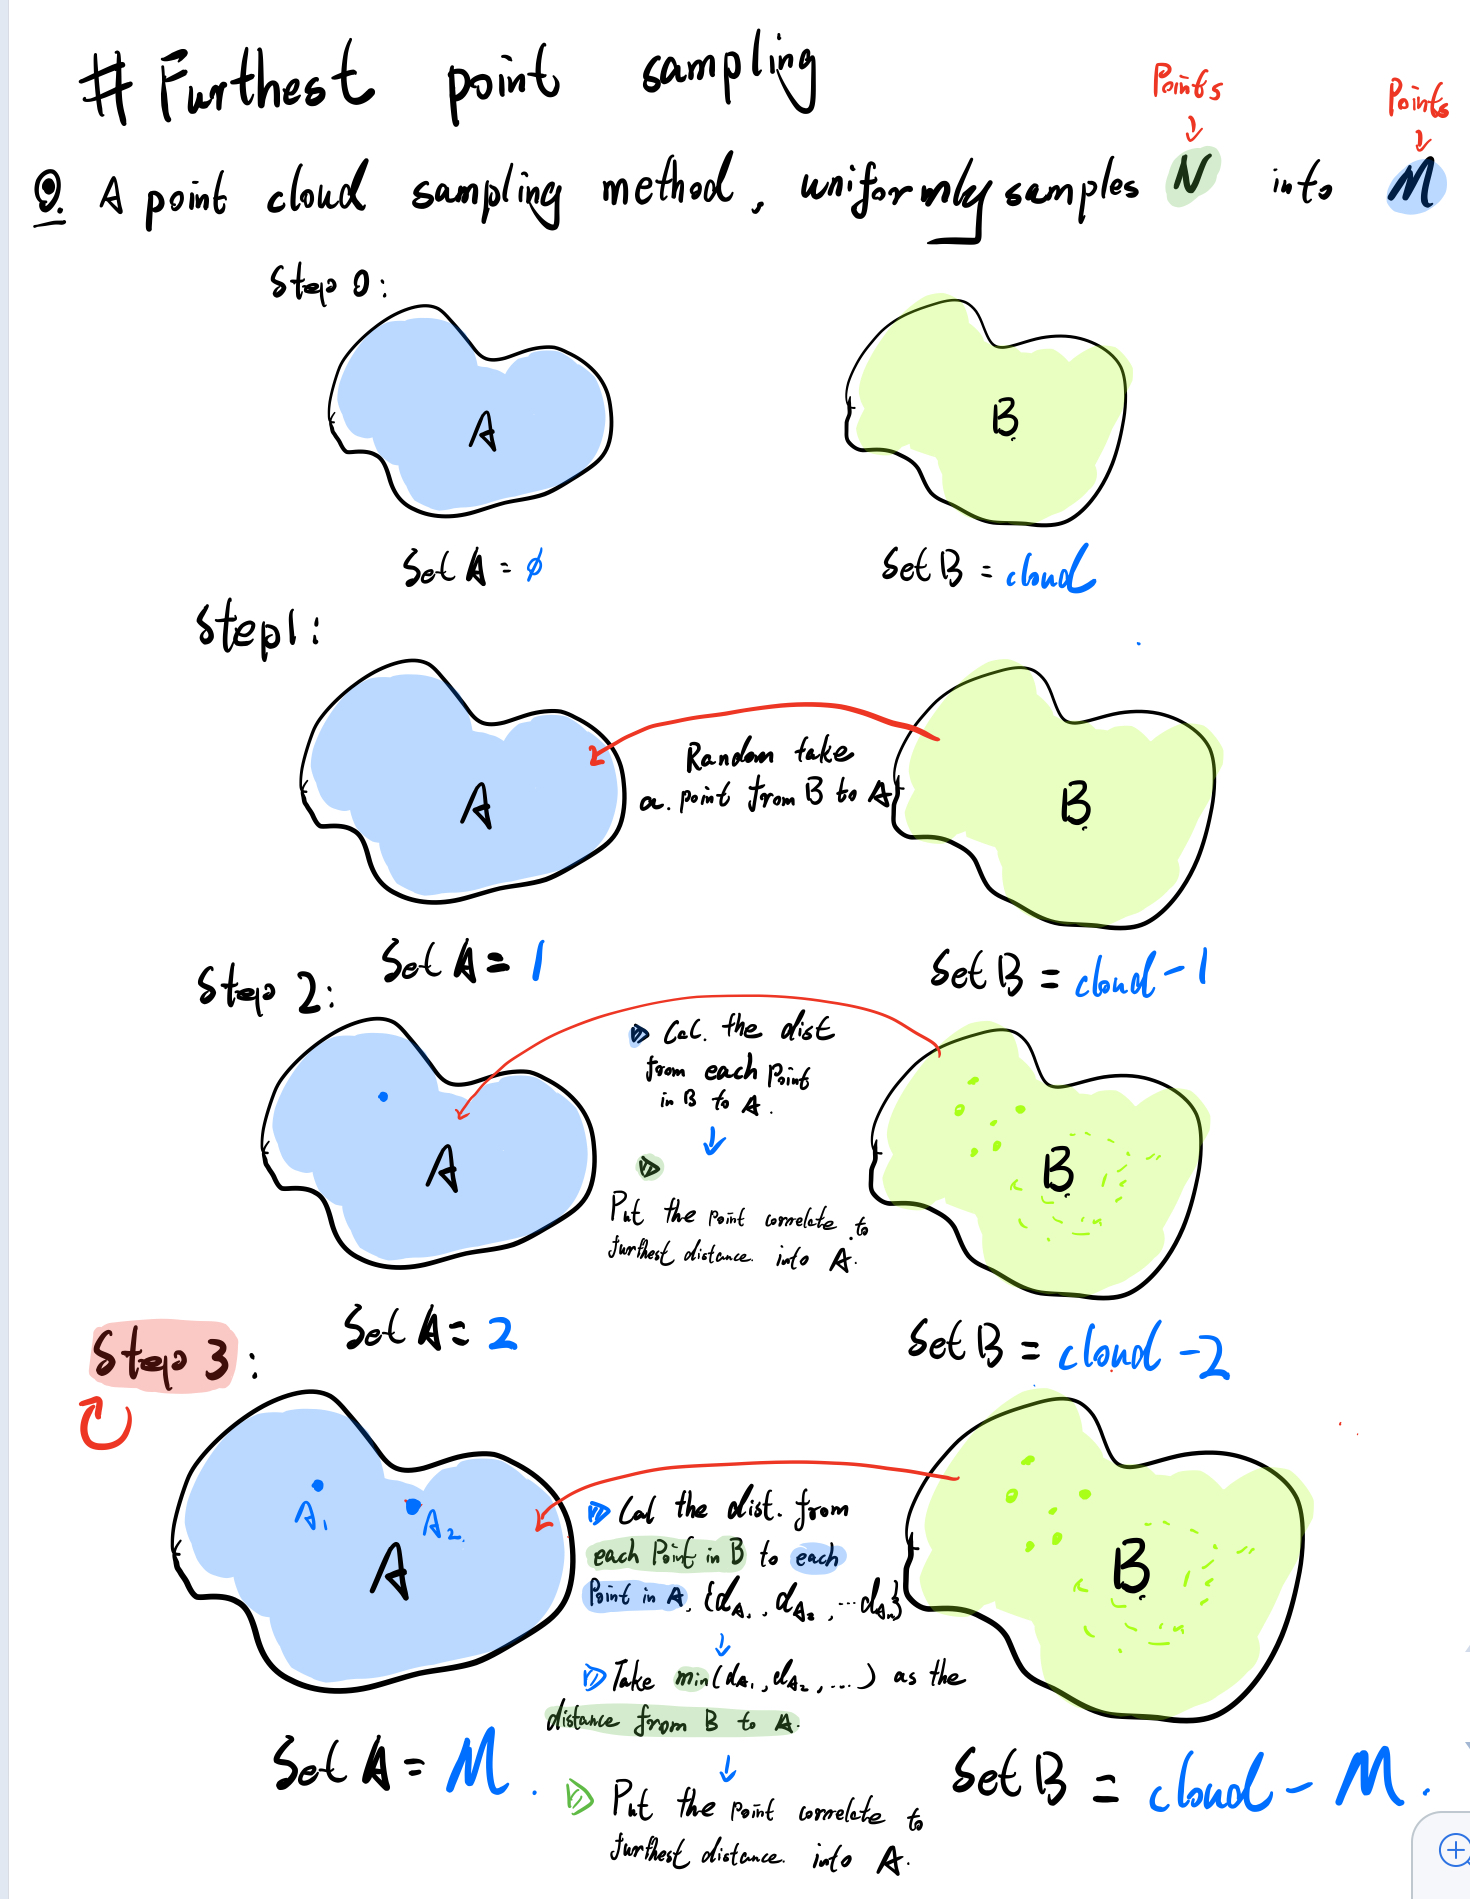 # Furthest point sampling
Points
Points
Q. A point cloud sampling method, uniformly samples N into M
Step 0:
A
B
Set A = ϕ
Set B = cloud
Step1:
Random take
a. point from B to A
A
B
Set A = 1
Set B = cloud-1
Step 2:
Cal. the dist
from each point
in B to A.
A
B
Put the point correlate to
furthest distance. into A.
Set A = 2
Set B = cloud -2
Step 3:
A1
A2
A
B
Cal the dist. from
each Point in B to each
Point in A. {dA1, dA2, ...dAn}
Take min(dA1, dA2, ...) as the
distance from B to A.
Set A = M.
Set B = cloud - M.
Put the point correlate to
furthest distance. into A.